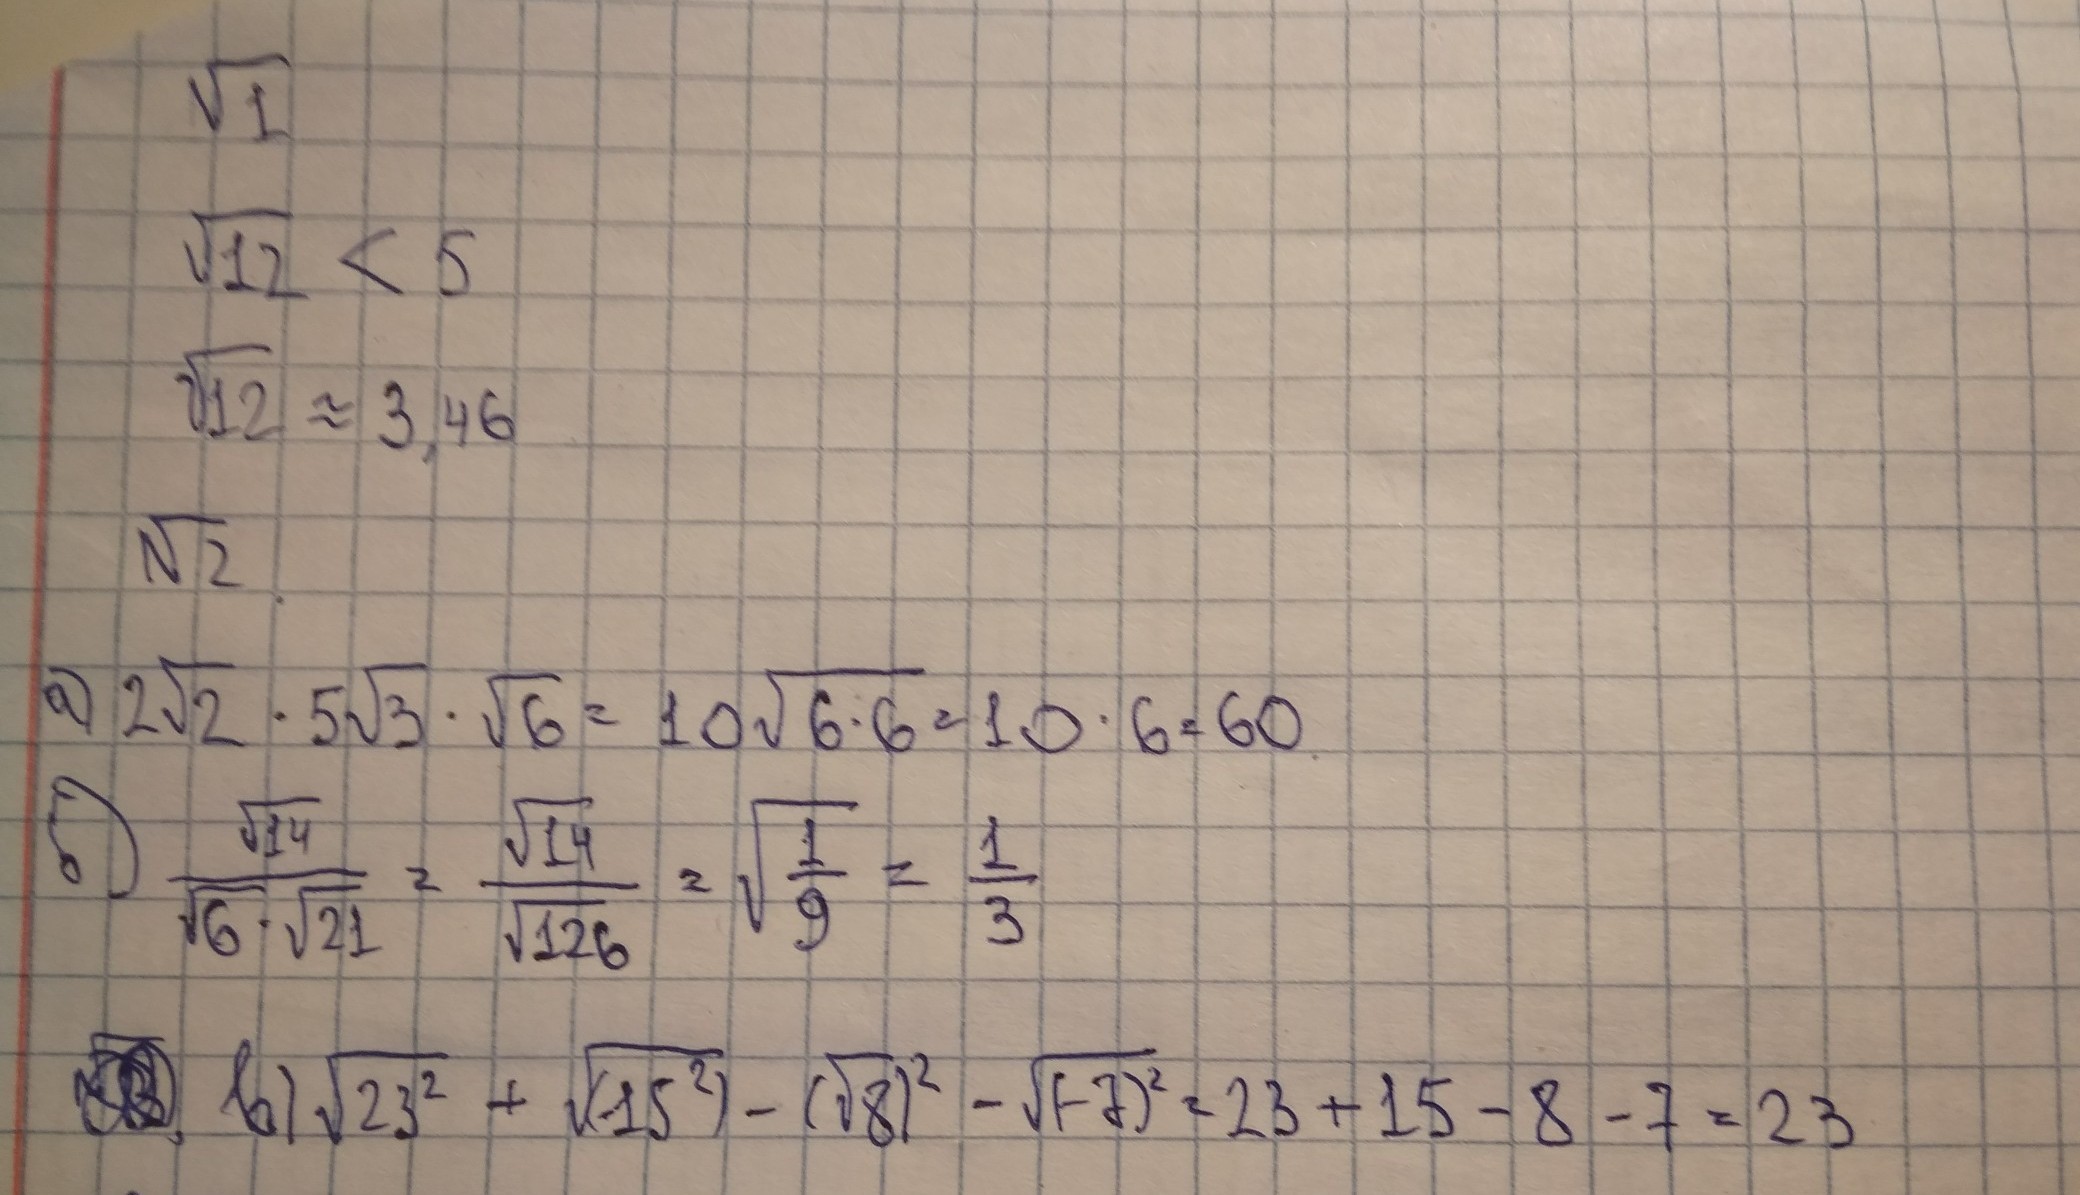 √1
√12 < 5
√12 ≈ 3,46
√2
а) 2√2 · 5√3 · √6 = 10√6·6 = 10 · 6 = 60
б) √14/(√6·√21) = √14/√126 = √(1/9) = 1/3
в) √23² + √(-15²) - (√8)² - √(-7)² = 23 + 15 - 8 - 7 = 23